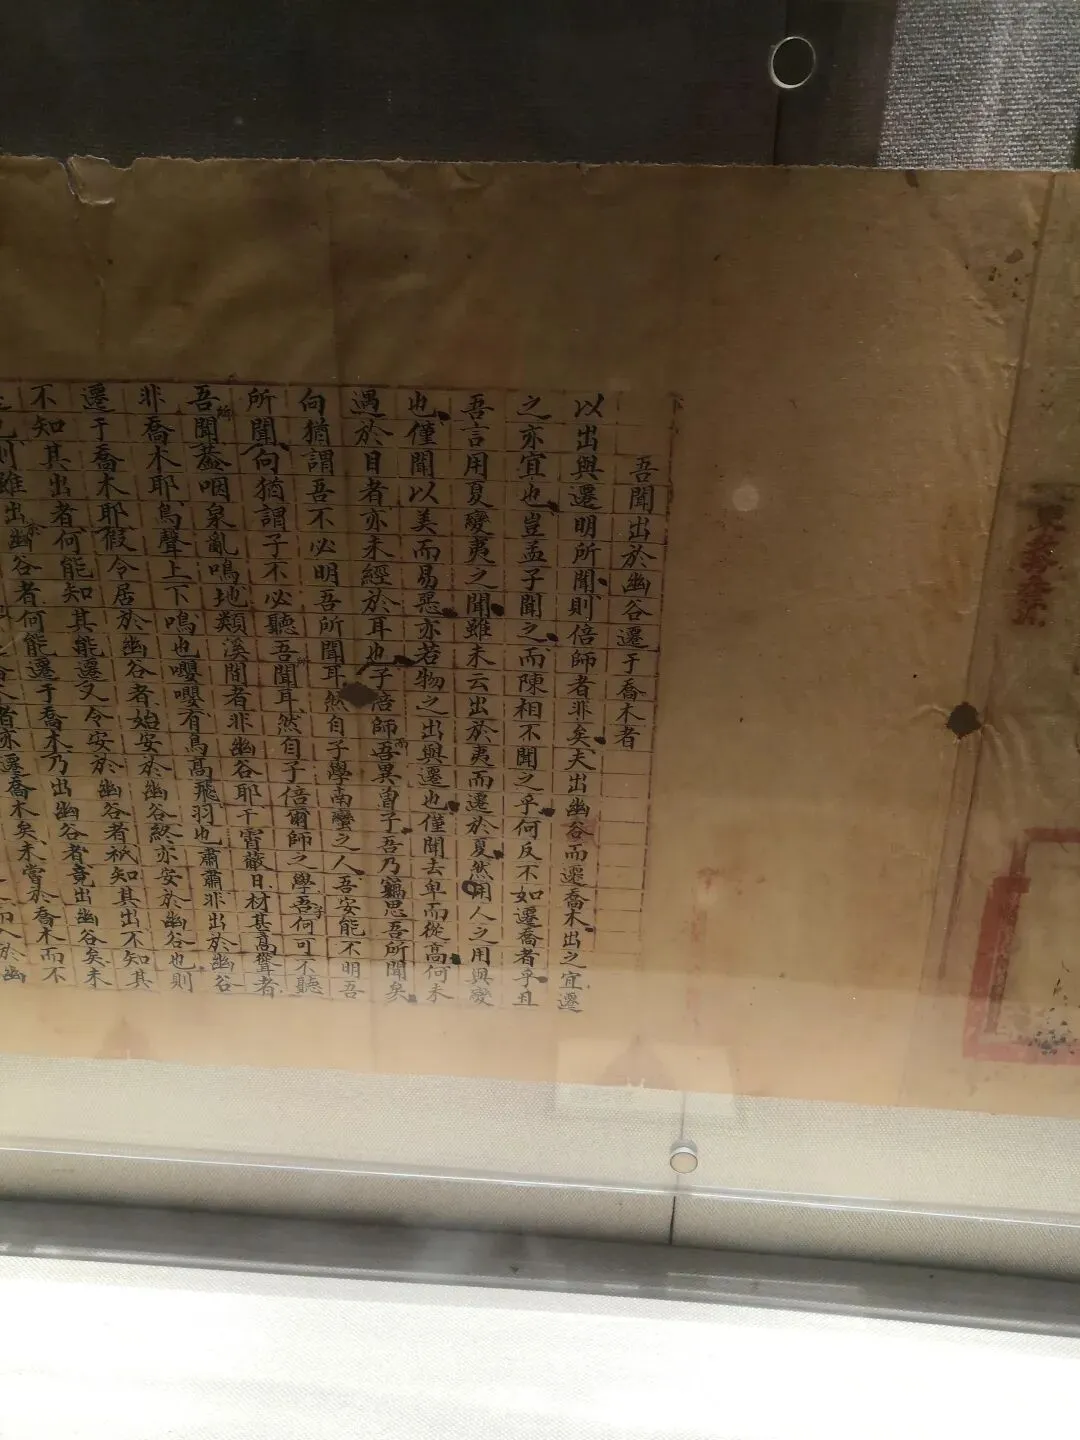 吾聞出於幽谷遷于喬木者
以出與遷明所聞則倍師者非矣夫出幽谷而遷喬木出之宜遷
之亦宜也豈孟子聞之而陳相不聞之乎何反不如遷喬者乎且
吾言用夏變夷之聞雖未云出於夷而遷於夏然用人之用與變
也僅聞以美而易惡亦若物之出與遷也僅聞去卑而從高何未
遇於目者亦未經於耳也子倍師吾異曾子吾乃竊思吾所聞矣
向猶謂吾不必明吾所聞耳然自子學南蠻之人吾安能不明吾
所聞向猶謂子不必聽吾所聞耳然自子倍爾師之學吾何可不聽
吾所聞蓋咽泉亂鳴地類溪間者非幽谷耶干霄蔽日材甚高聳者
非喬木耶鳥聲上下鳴也嚶嚶有鳥高飛羽也肅肅非出於幽谷
遷于喬木耶假令居於幽谷者始安於幽谷終亦安於幽谷也則
不知其出者何能知其能遷又令安於幽谷者祇知其出不知其
雖出幽谷者何能遷于喬木乃出幽谷者竟出幽谷矣未
者亦遷喬木矣未嘗於喬木而不